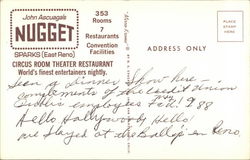 John Ascuaga's
NUGGET
SPARKS (East Reno)
353
Rooms
7
Restaurants
Convention
Facilities
CIRCUS ROOM THEATER RESTAURANT
World's finest entertainers nightly.
ADDRESS ONLY
POSTCARD
Seen a dinner Show here -
complements of the credit union
employees Feb. 1988
Hello Hollywood Hello!
are staged at the Bally's in Reno,